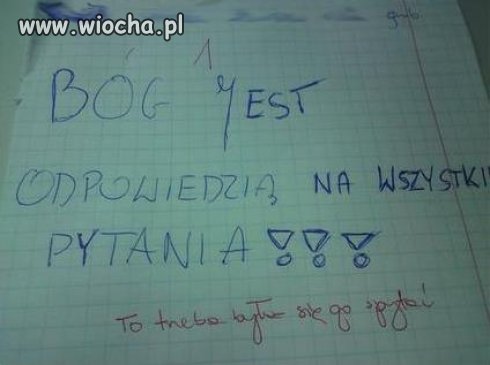 www.wiocha.pl
1
BÓG JEST
ODPOWIEDZIĄ NA WSZYSTKI
PYTANIA!!!
To trzeba było się go spytać